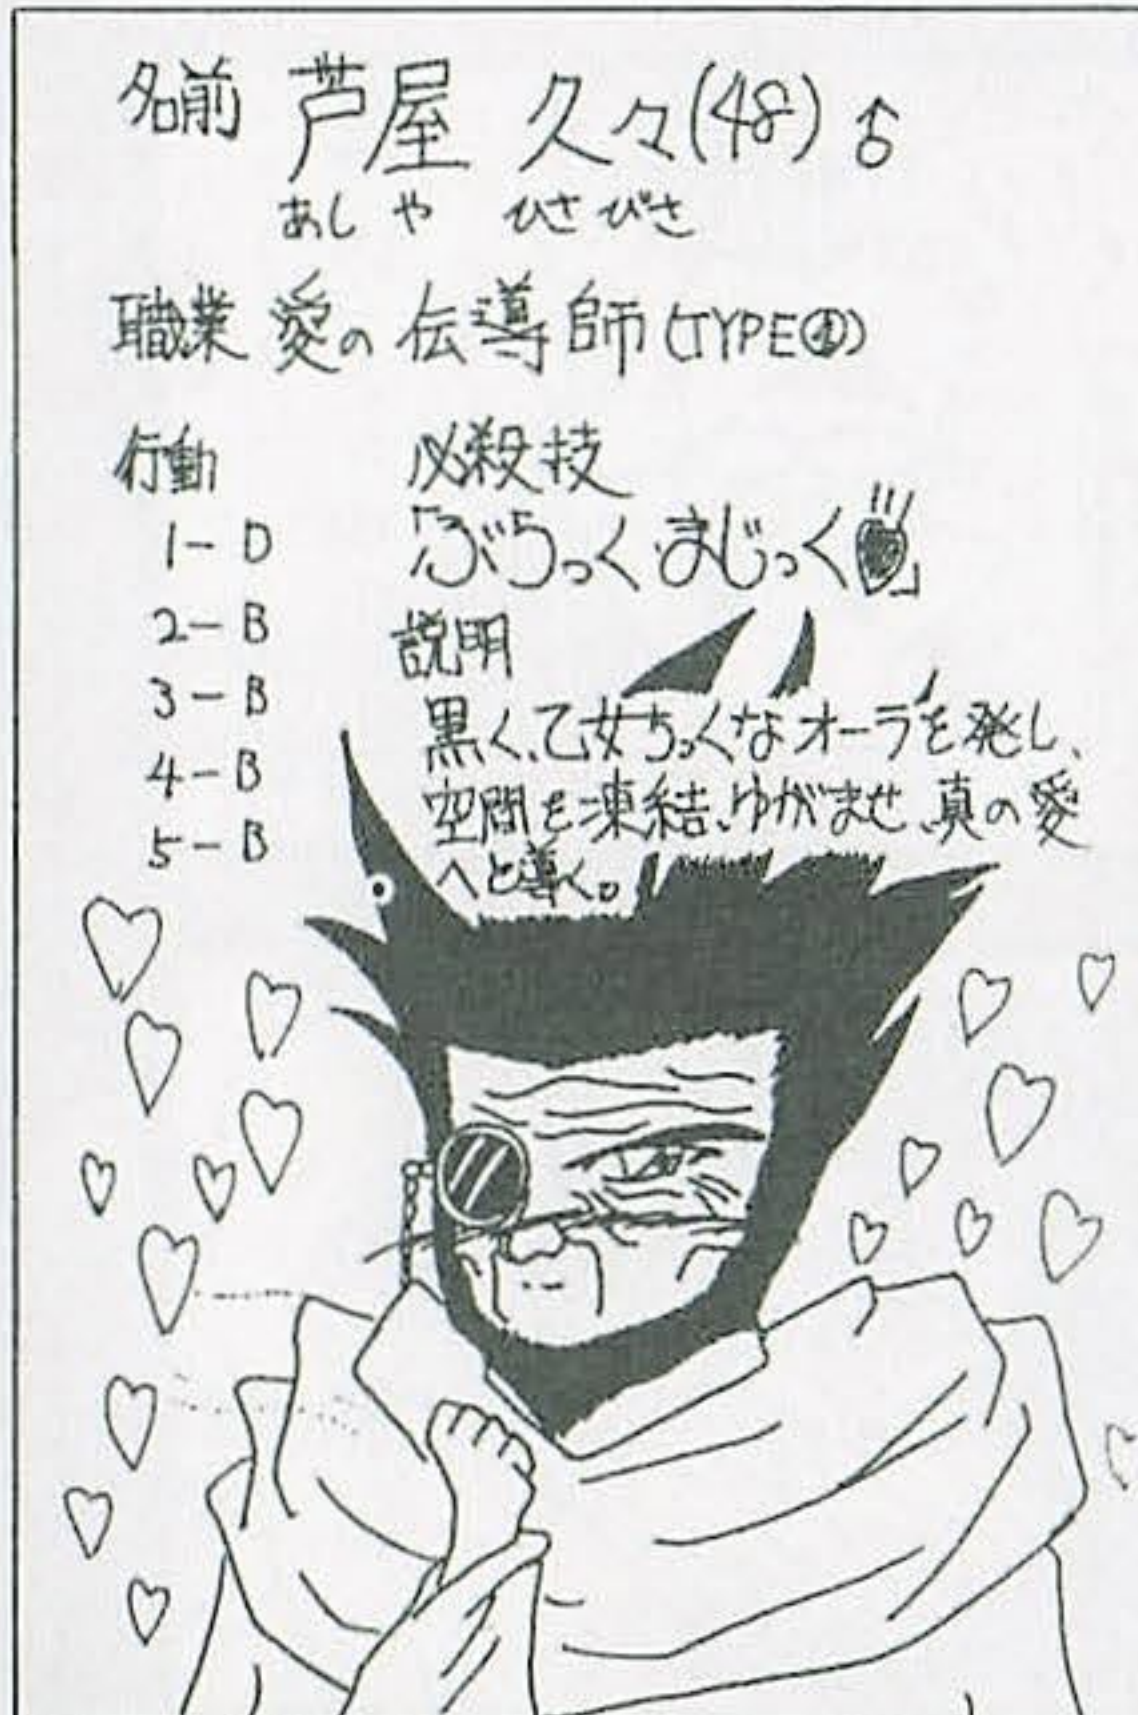 名前 芦屋 久々(48)♂
あしや ひさびさ
職業 愛の伝導師(TYPE①)
行動
1-D
2-B
3-B
4-B
5-B
必殺技
「ぶらっくまじっく♥」
説明
黒く、乙女ちっくなオーラを発し、
空間を凍結、ゆがませ、真の愛
へと導く。